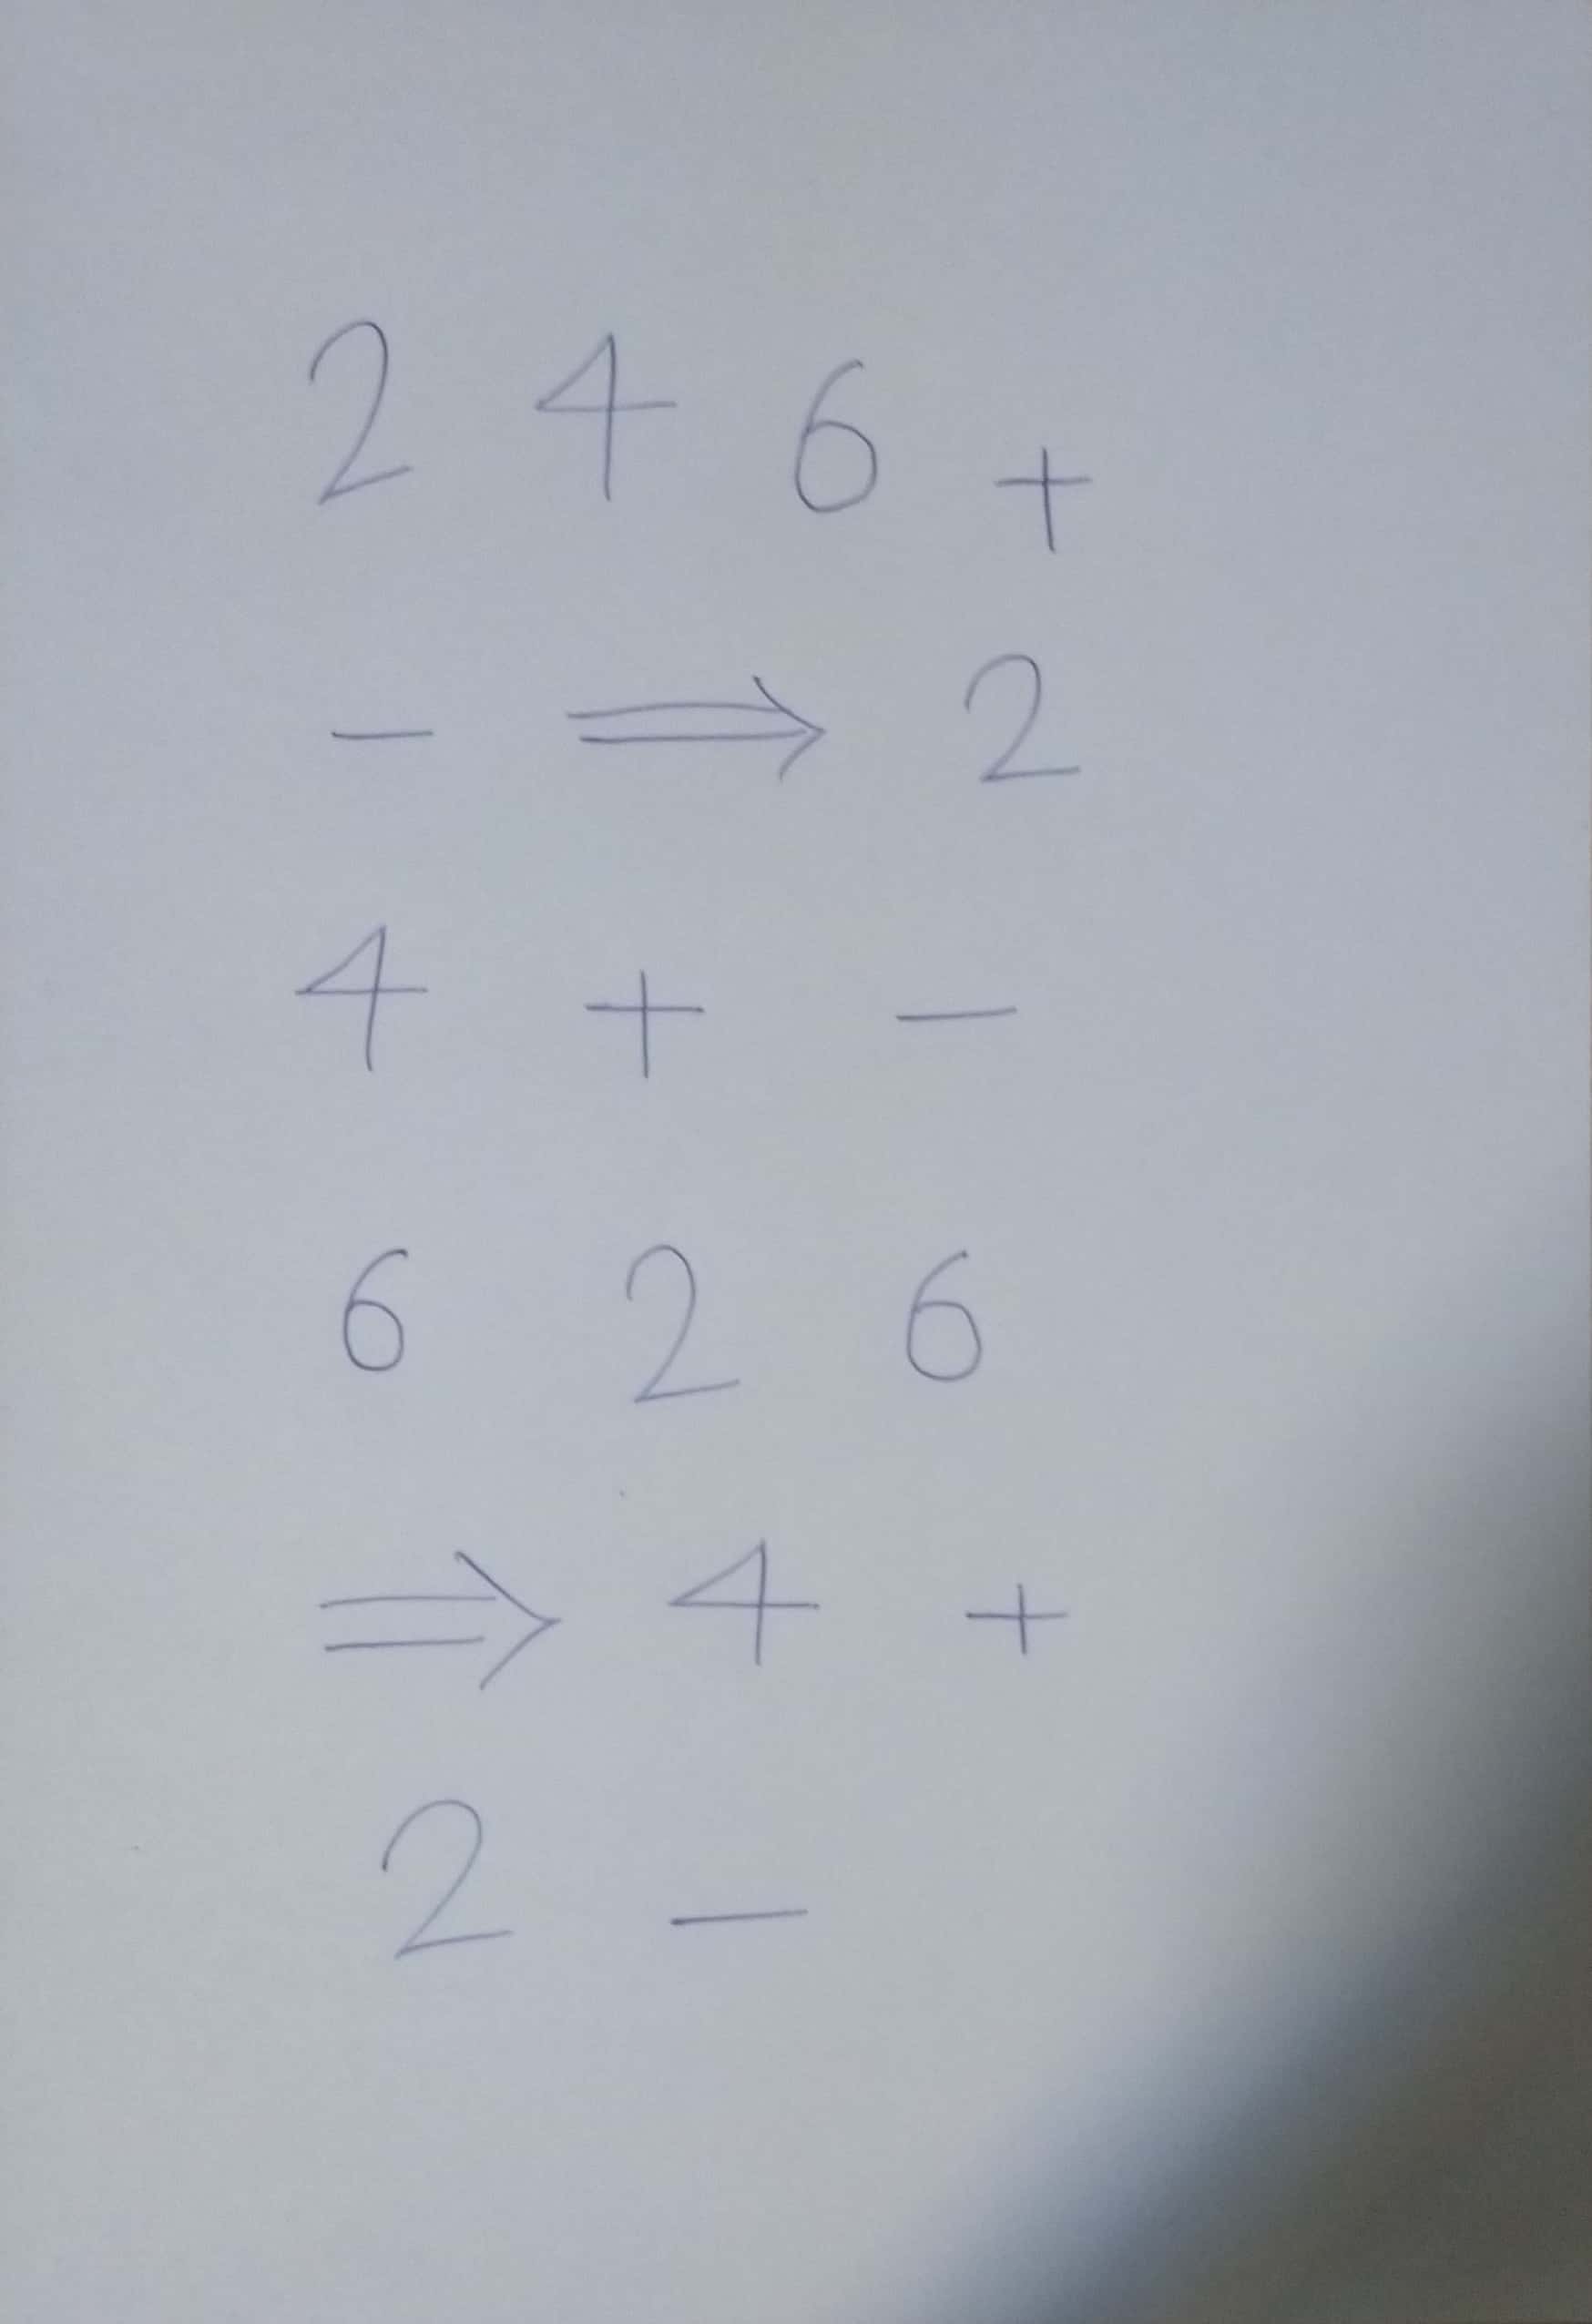 2 4 6 +
- ⇒ 2
4 + -
6 2 6
⇒ 4 +
2 -